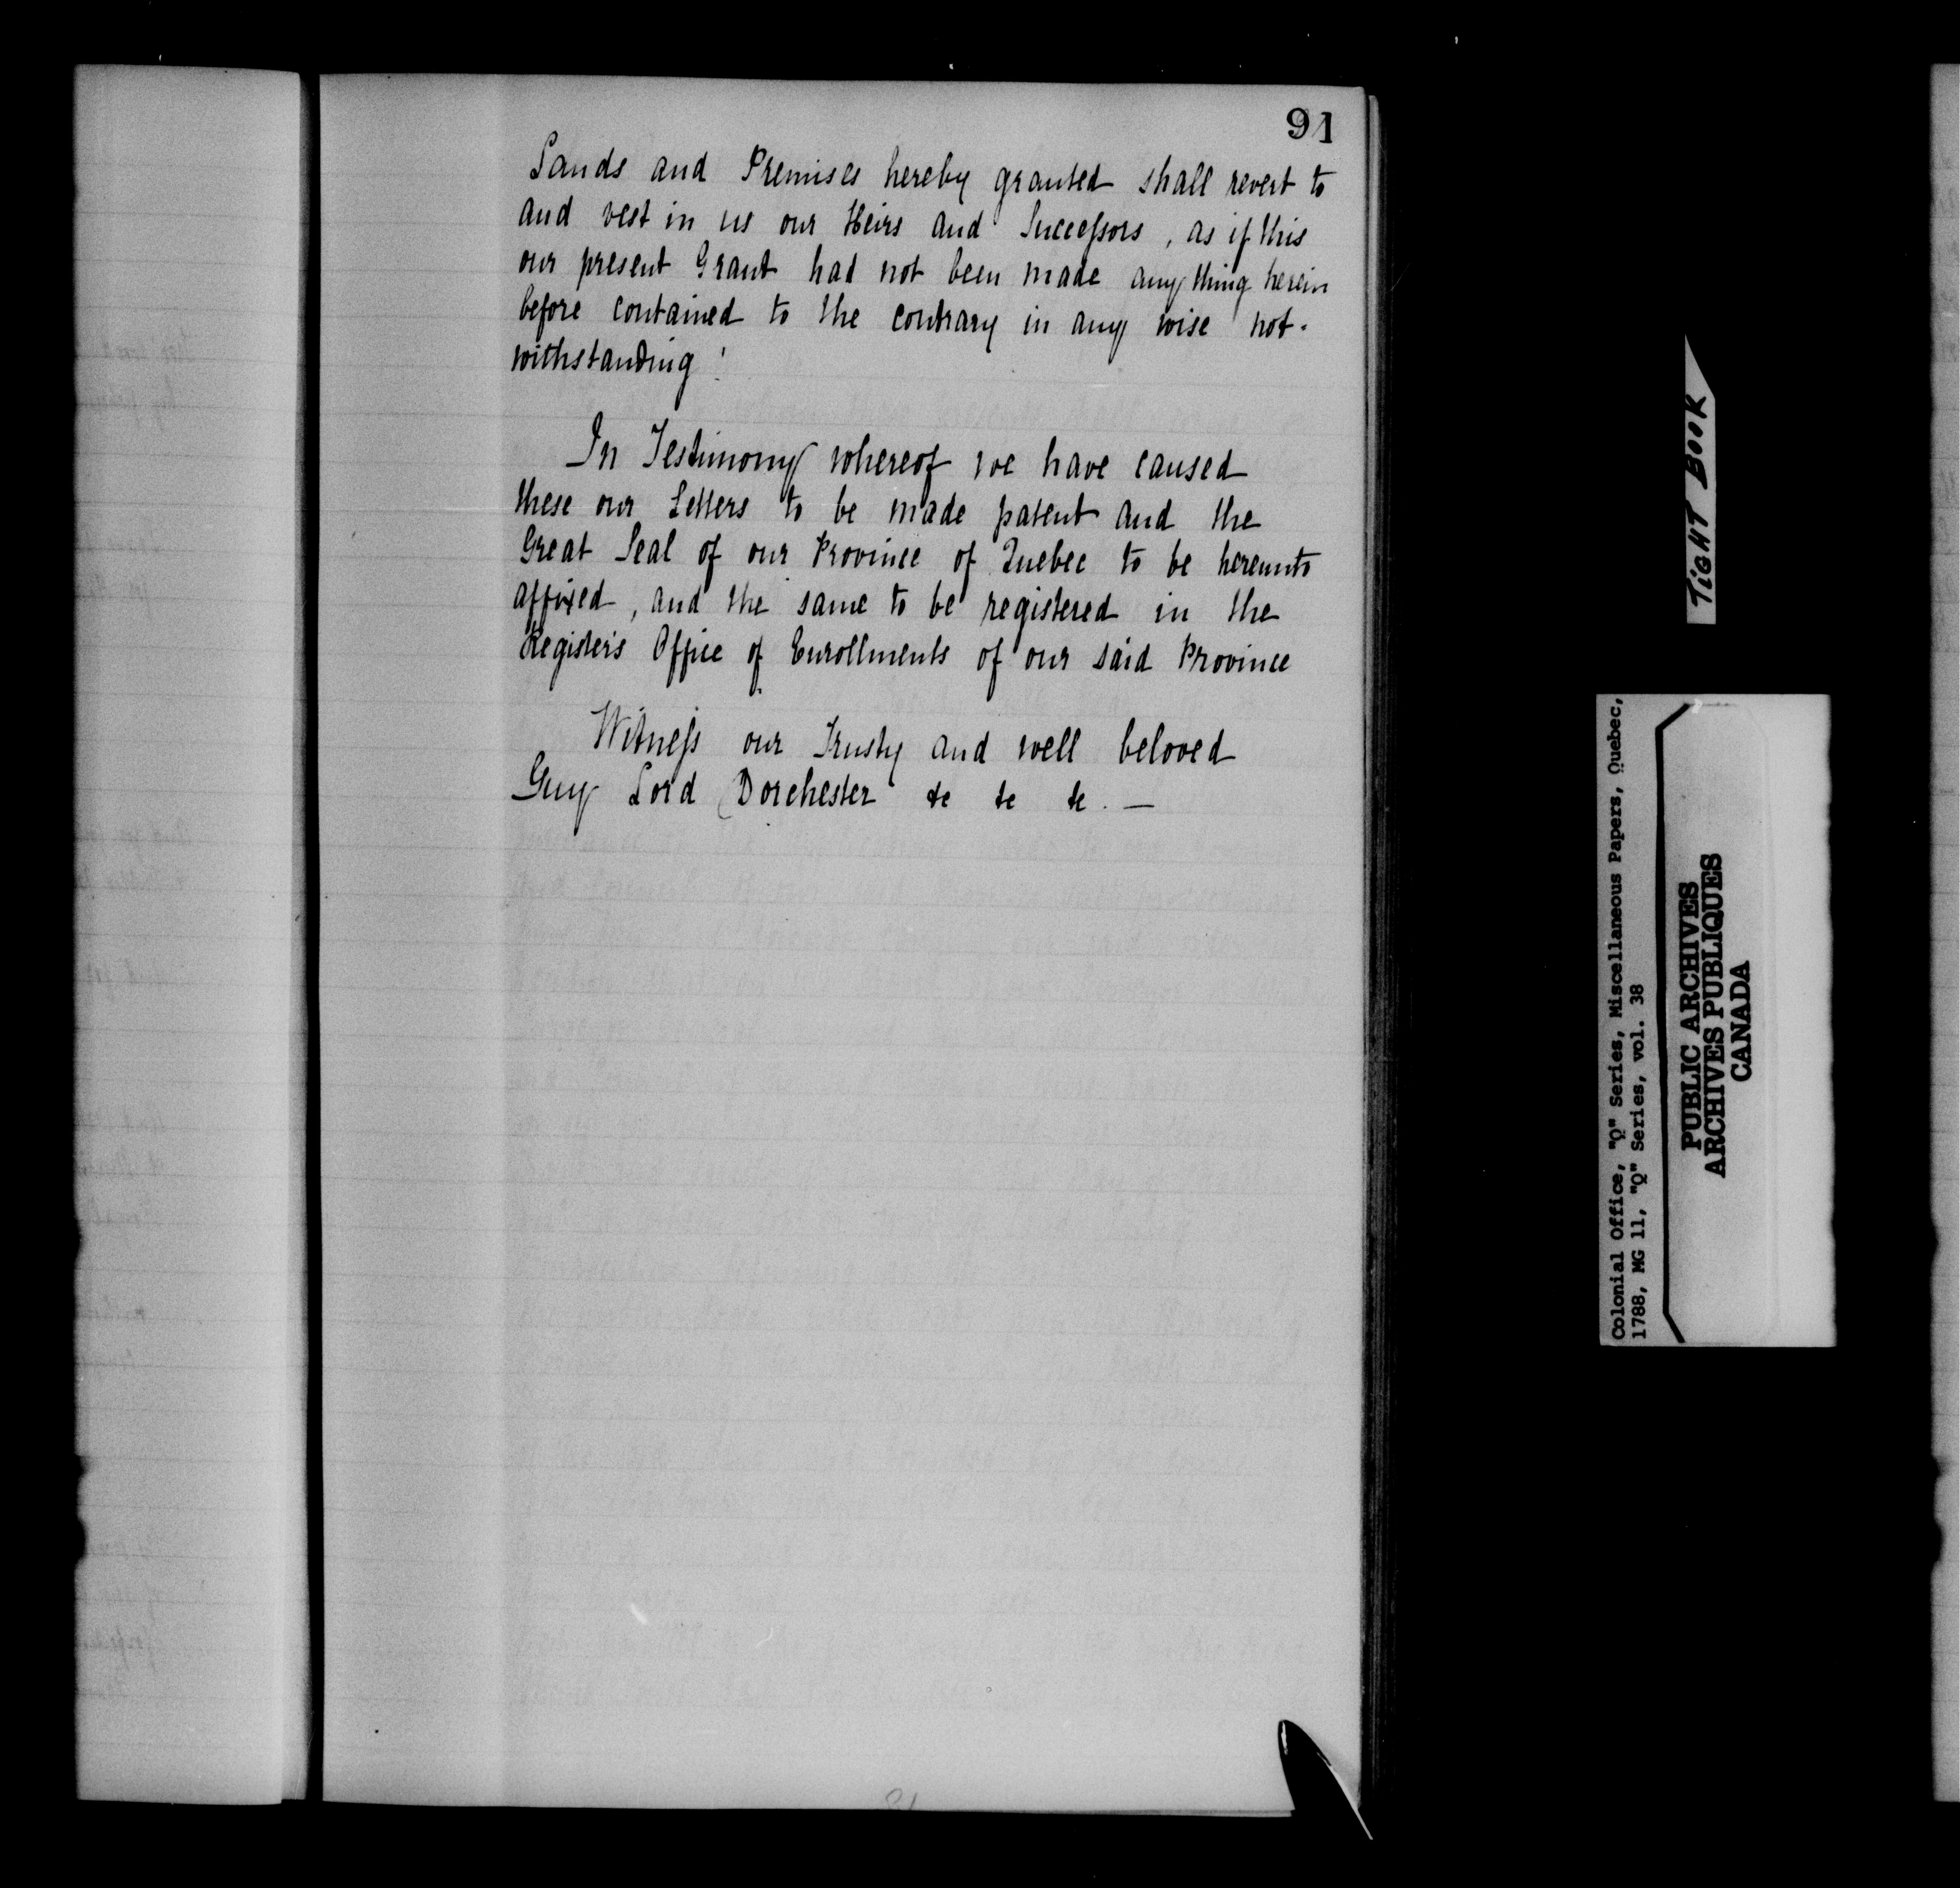 91
Lands and Premises hereby granted shall revert to
and vest in us our Heirs and Succeſsors, as if this
our present Grant had not been made any thing herein
before contained to the contrary in any wise not-
withstanding!
In Testimony whereof we have caused
these our Letters to be made patent and the
Great Seal of our Province of Quebec to be hereunto
affixed, and the same to be registered in the
Register's Office of Enrollments of our said Province
Witneſs our Trusty and well beloved
Guy Lord Dorchester &c &c &c. —
TIGHT BOOK
Colonial Office, "Q" Series, Miscellaneous Papers, Quebec,
1788, MG 11, "Q" Series, vol. 38
PUBLIC ARCHIVES
ARCHIVES PUBLIQUES
CANADA